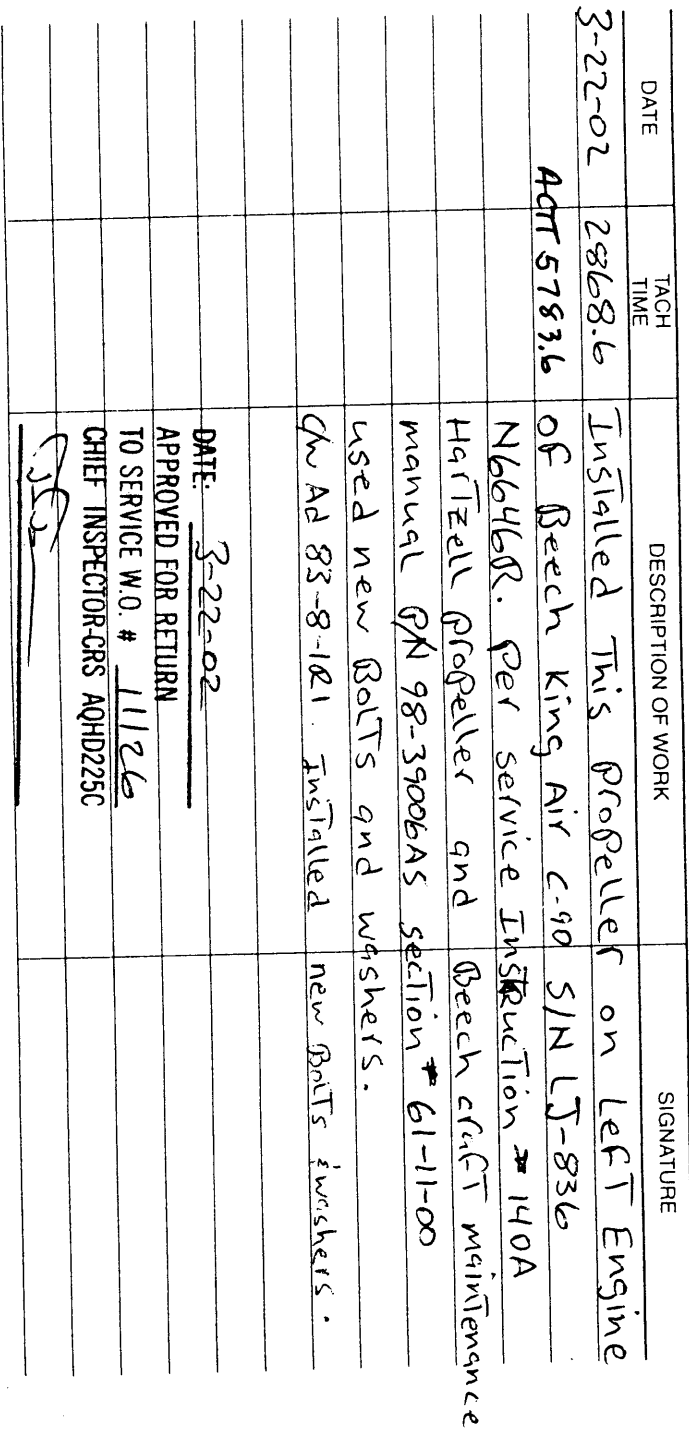 DATE TACH TIME DESCRIPTION OF WORK SIGNATURE
3-22-02 2868.6 Installed This propeller on Left Engine
ACTT 5783.6 of Beech King Air C-90 S/N LJ-836
N6646R. Per service Instruction # 140A
Hartzell propeller and Beech craft maintenance
manual P/N 98-39006A5 section # 61-11-00
used new Bolts and washers.
C/W Ad 83-8-1R1. Installed new Bolts & washers.
DATE: 3-22-02
APPROVED FOR RETURN
TO SERVICE W.O. # 11126
CHIEF INSPECTOR-CRS AQHD225C